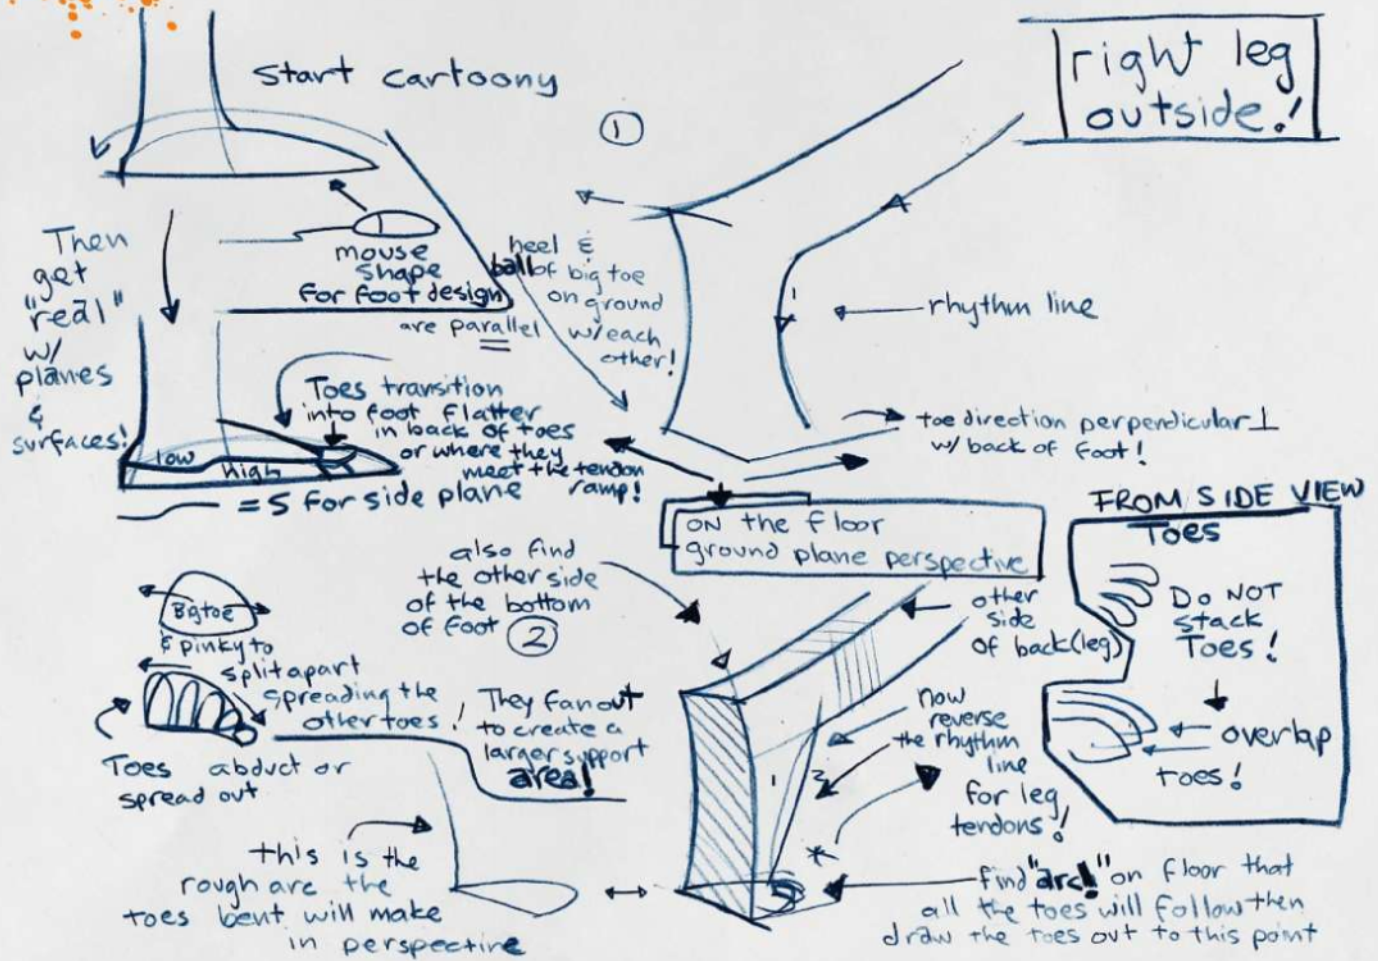 Start cartoony
①
right leg
outside!
Then
get
"real"
w/
planes
&
surfaces!
mouse
shape
for foot design
heel &
ball of big toe
on ground
are parallel
w/each
other!
rhythm line
Toes transition
into foot flatter
in back of toes
or where they
meet the tendon
ramp!
low
high
= S for side plane
toe direction perpendicular ⊥
w/ back of foot!
ON the floor
ground plane perspective
FROM SIDE VIEW
Toes
Do NOT
stack
Toes!
overlap
toes!
also find
the other side
of the bottom
of foot ②
other
side
of back(leg)
Bigtoe
& pinky to
split apart
spreading the
other toes!
They fan out
to create a
larger support
area!
Toes abduct or
spread out
now
reverse
the rhythm
line
for leg
tendons!
this is the
rough arc the
toes bent will make
in perspective
*
find "arc!" on floor that
all the toes will follow then
draw the toes out to this point